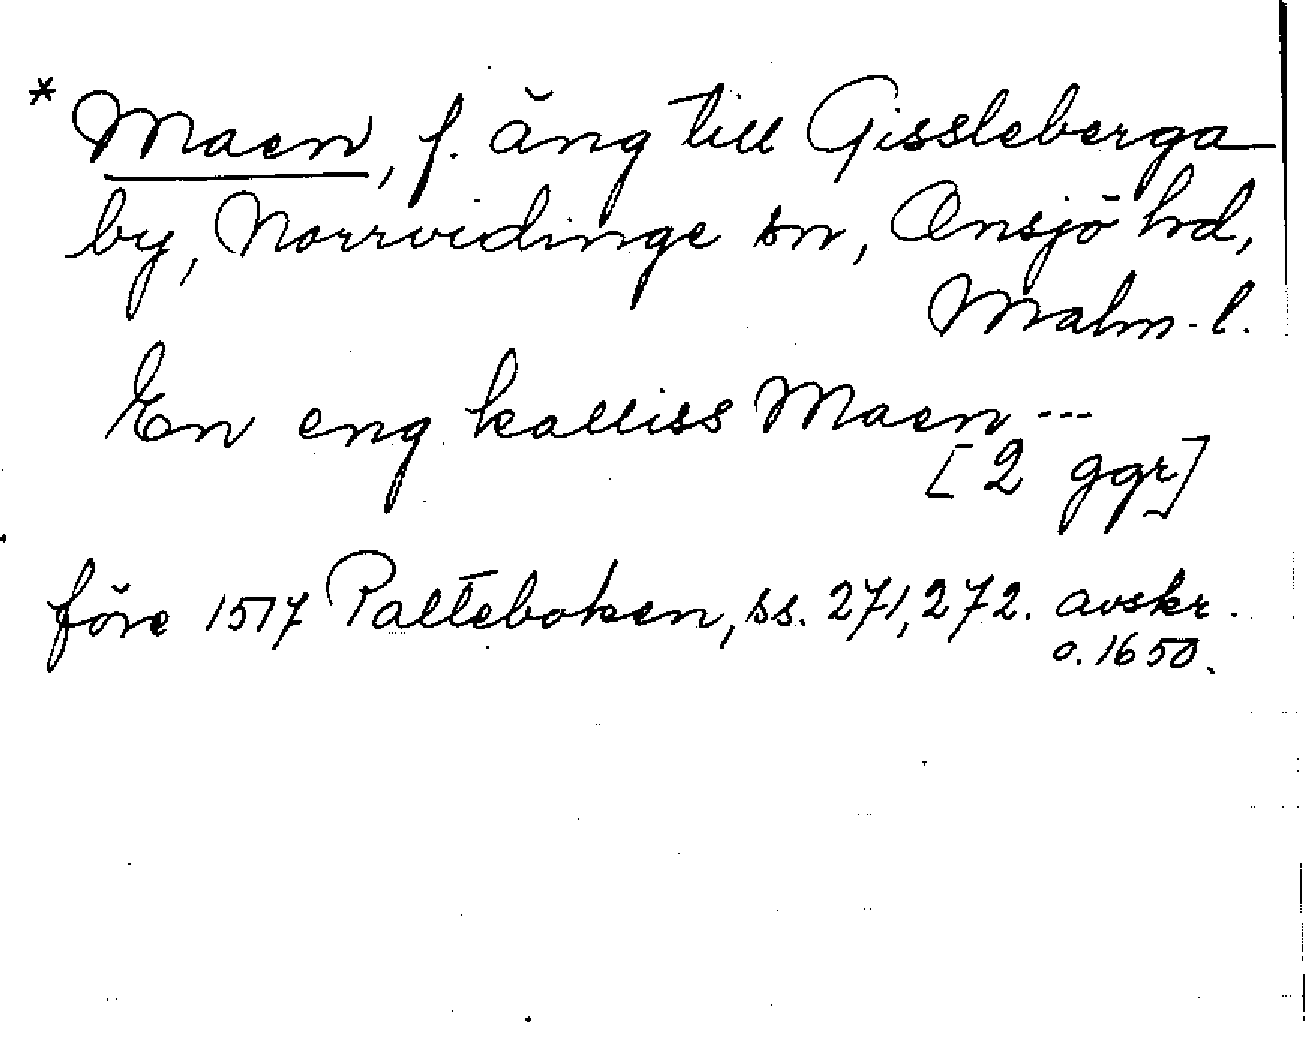 * Maen, f. äng till Gissleberga
by, Norrvidinge sn, Onsjö hd,
Malm. l.
En eng kalliss Maen ---
[2 ggr]
före 1517 Palteboken, ss. 271, 272. avskr.
o. 1650.